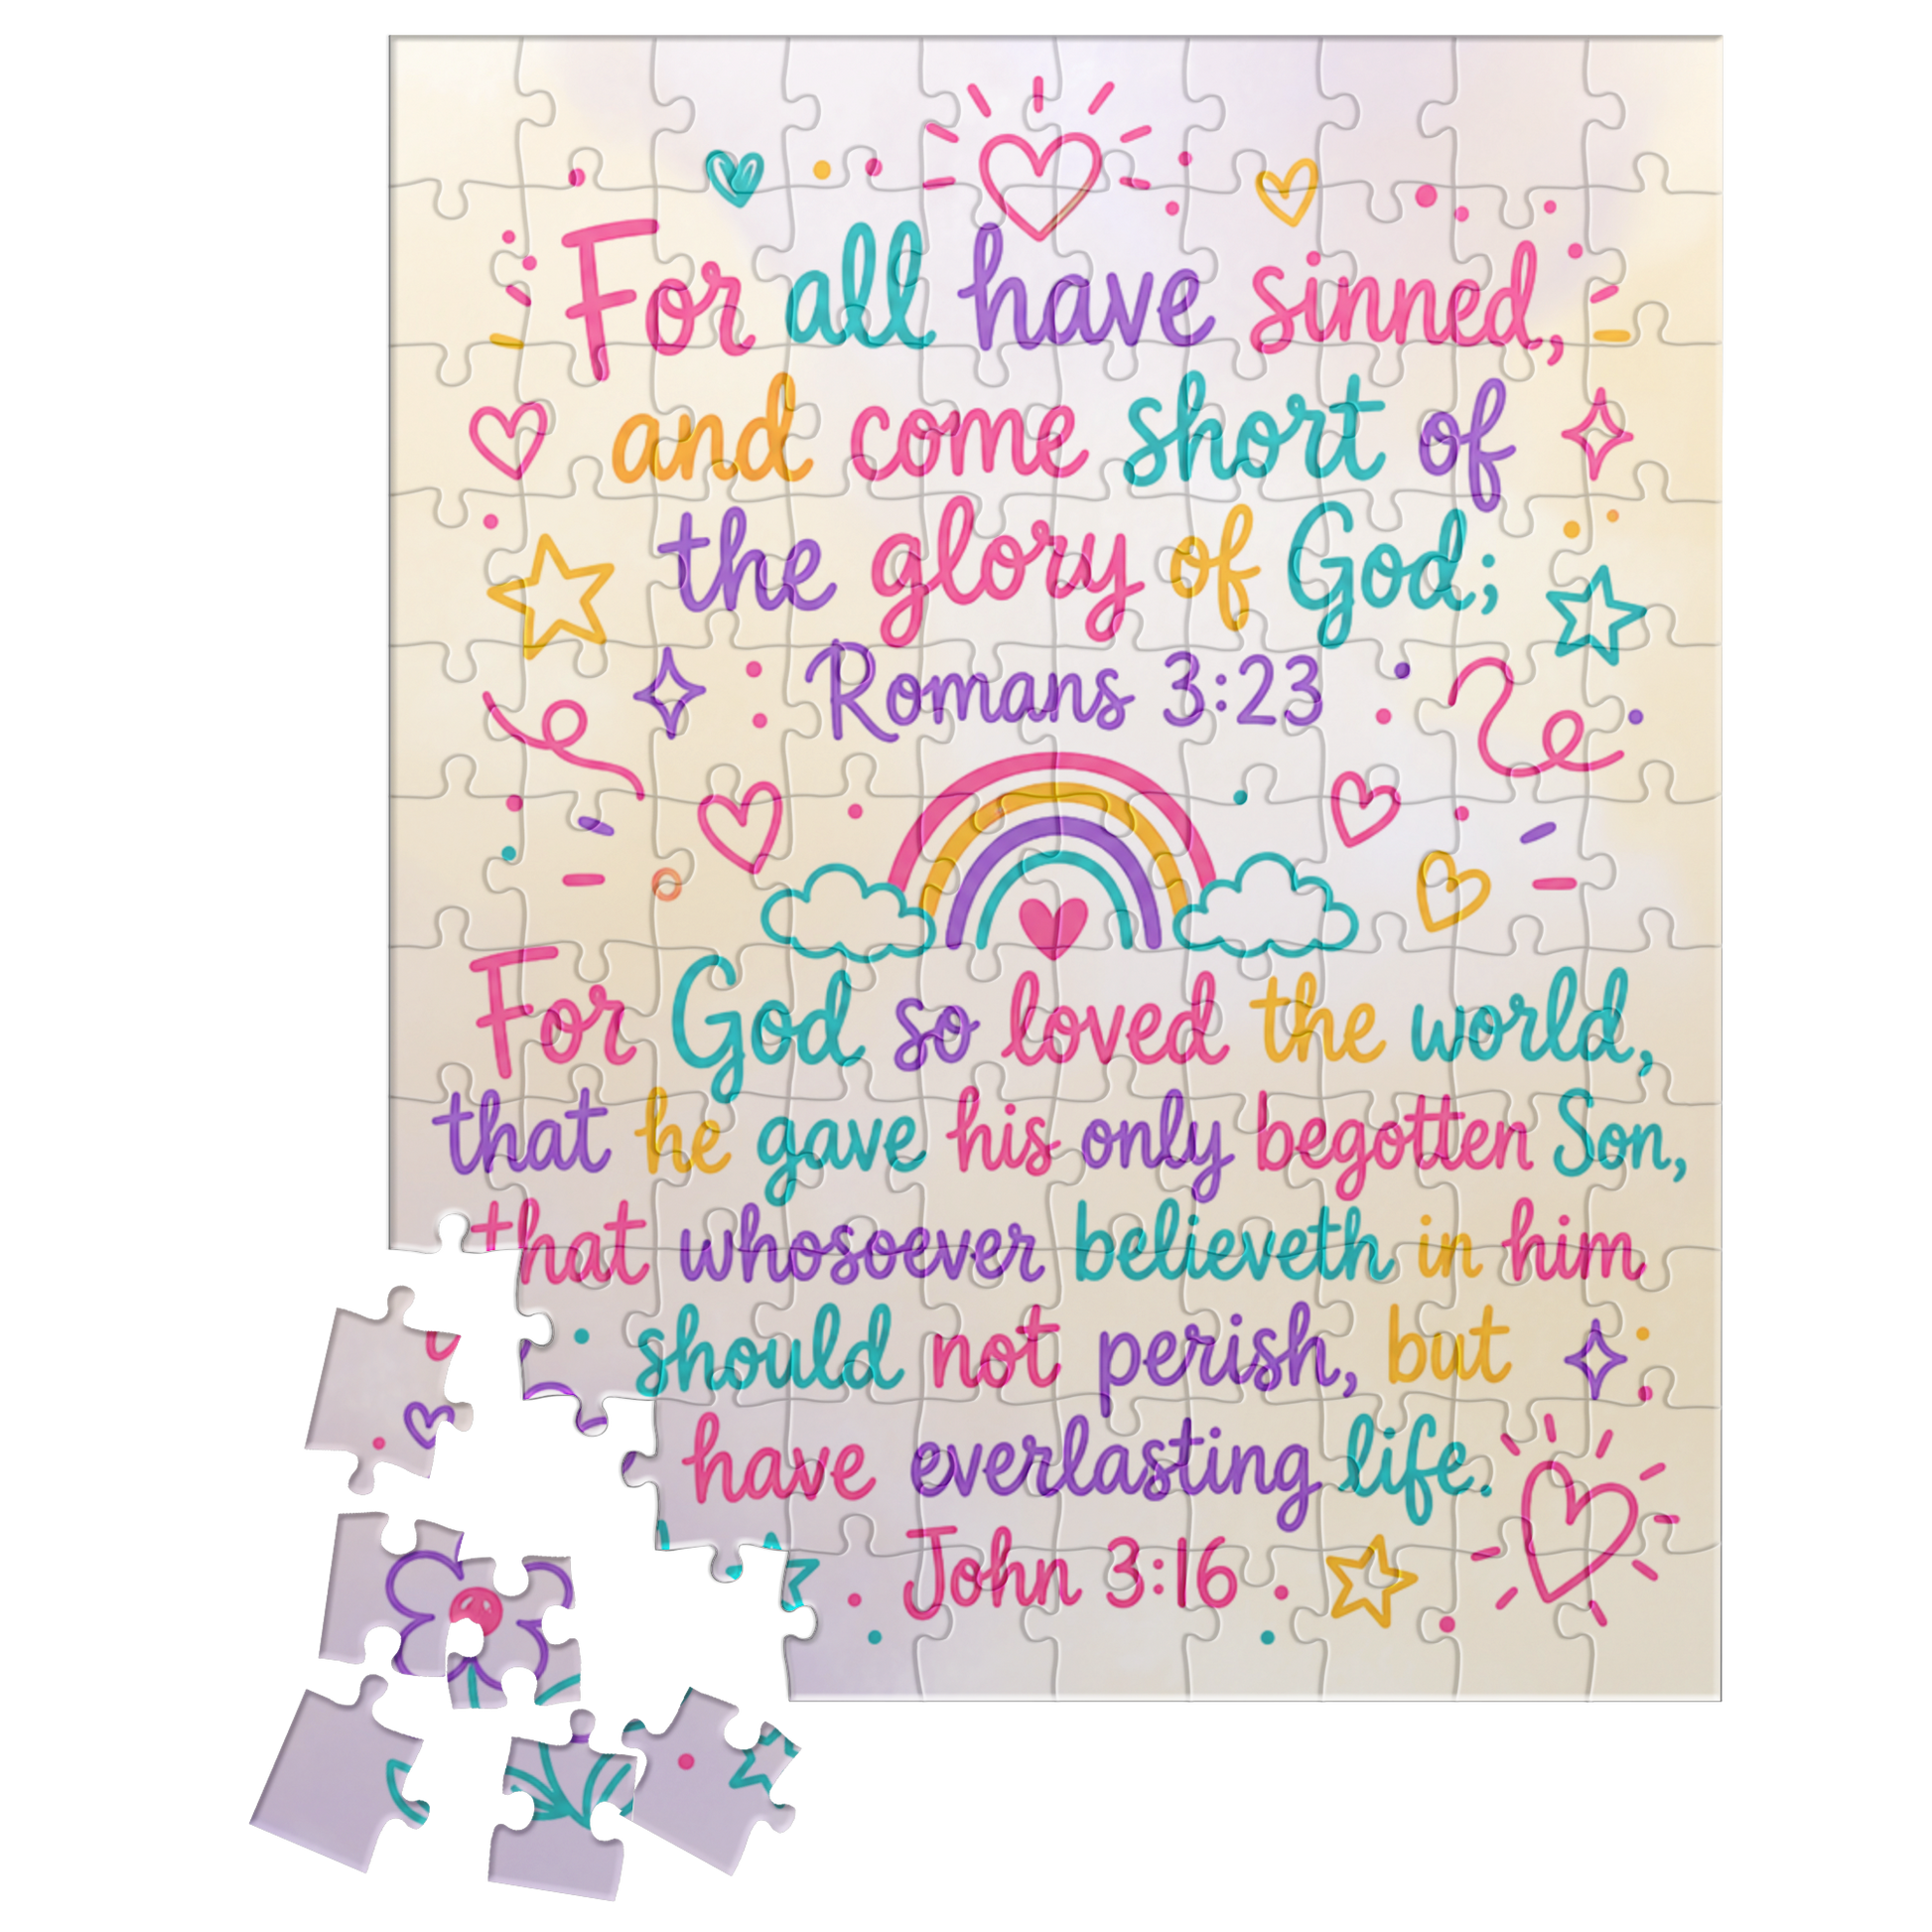 For all have sinned,
and come short of
the glory of God;
Romans 3:23
For God so loved the world,
that he gave his only begotten Son,
that whosoever believeth in him
should not perish, but
have everlasting life.
John 3:16